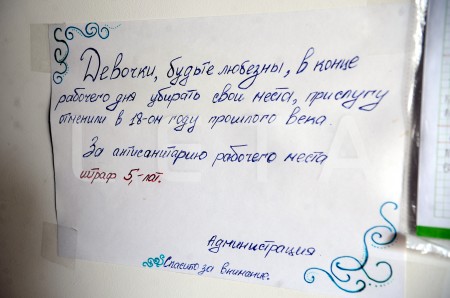 Девочки, будьте любезны, в конце
рабочего дня убирать свои места, прислугу
отменили в 18-ом году прошлого века.
За антисанитарию рабочего места
штраф 5,- лат.
Администрация
Спасибо за внимание.